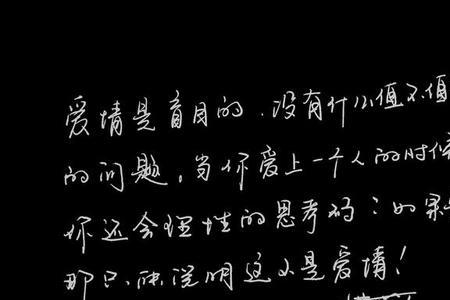 爱情是盲目的．没有什么值不值
的问题，当你爱上一个人的时候
你还会理性的思考码？如果
那只能说明这不是爱情！